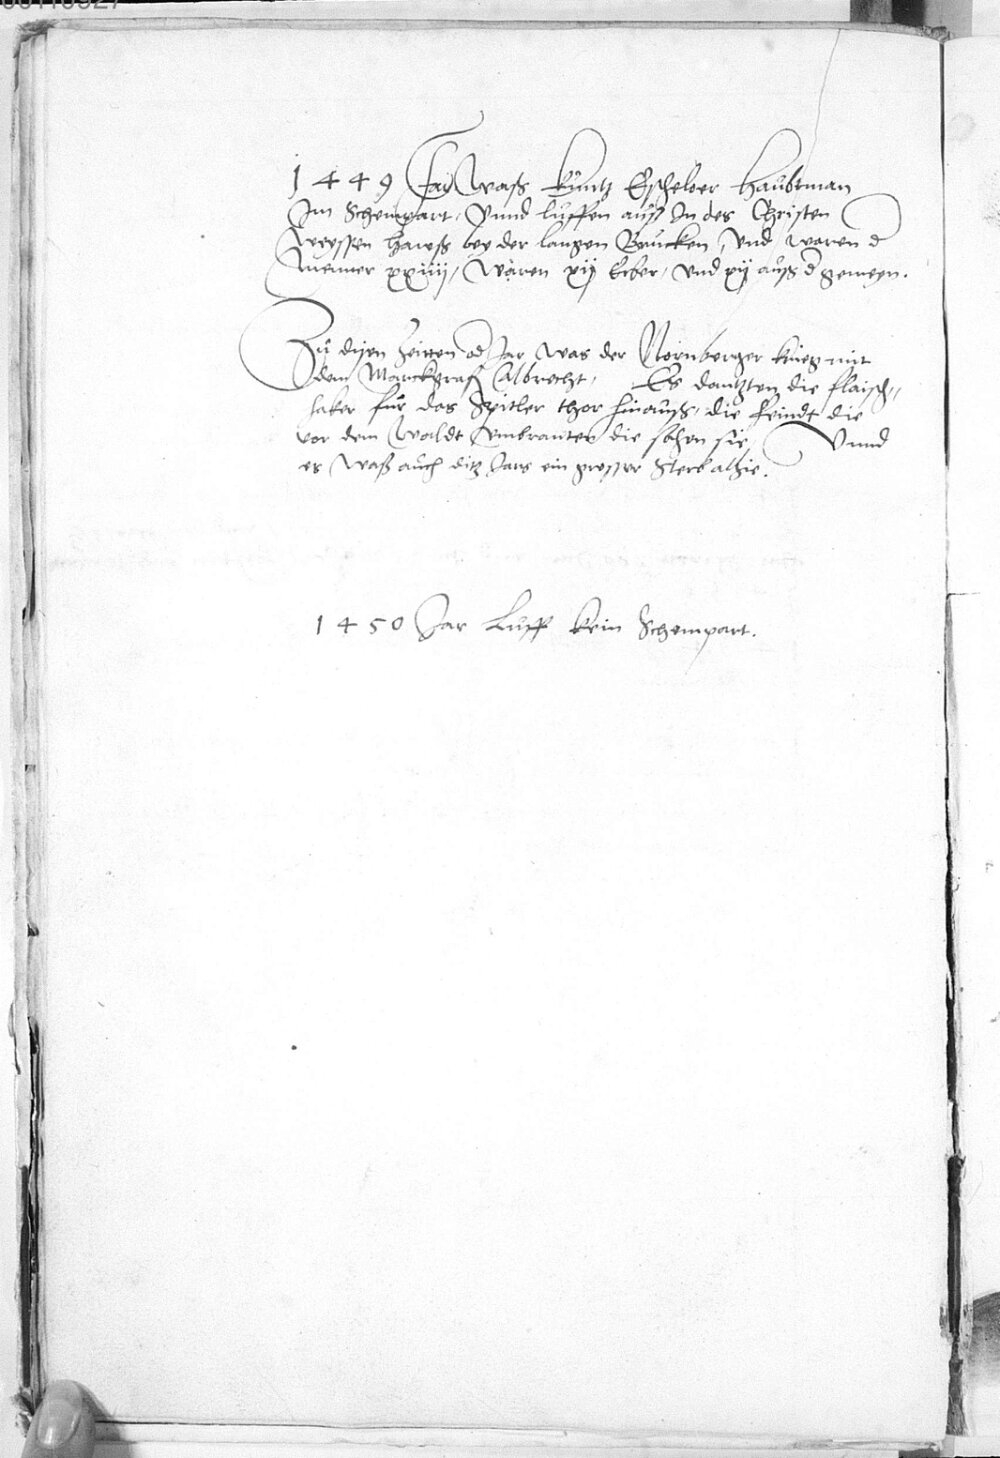 1449 Jar Waß Kuntz Escheloer Haubtman
Im Schempart, Vnnd luffen auß In des Christen
Weyssen Hawß bey der langen Brucken, Vnd waren d
Menner xxiiij, Waren xij Erber, vnd xij auß d gemeyn.
Zu disen Zeitten od Jar was der Nornberger krieg mit
dem Marckgraff Albrecht, Es dantzten die flaisch„
haker für das Spitler thor hinauß, die feindt die
vor dem Waldt vmbranten die sahen sie, Vnnd
es Waß auch ditz Jars ein grosser Sterb alhie.
1450 Jar Luff kein Schempart.